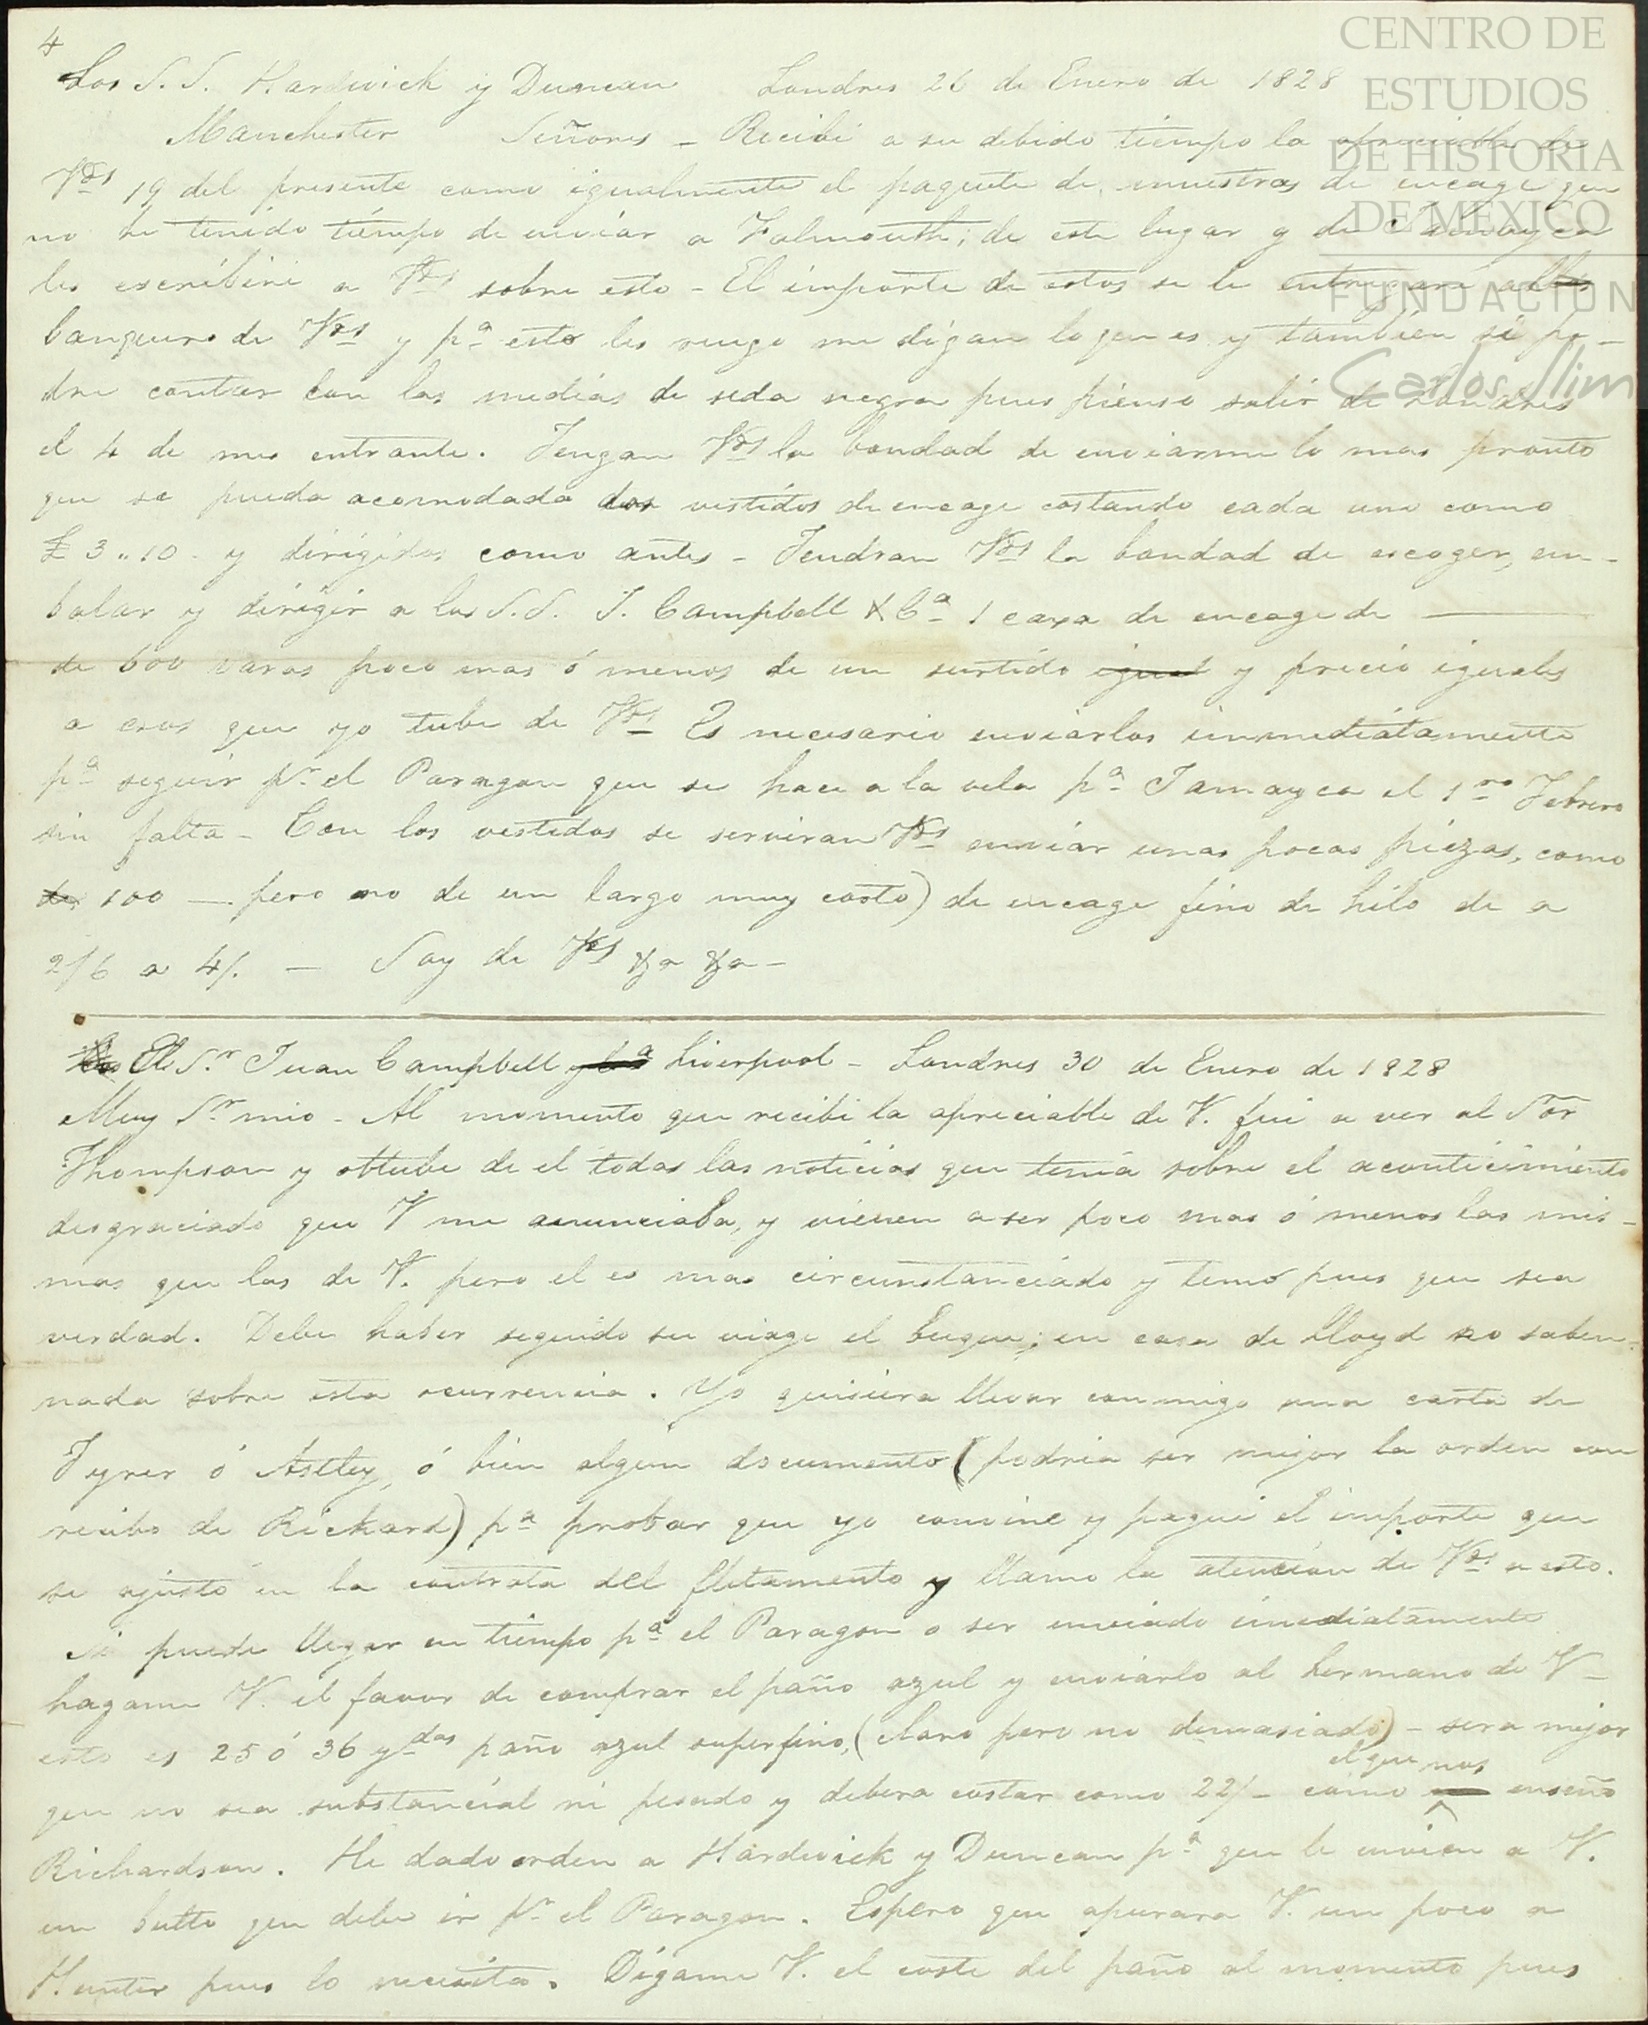 4
Los S.S. Hardwick y Duncan Londres 26 de Enero de 1828
Manchester Señores _ Recibi a su debido tiempo la apreciable de
Vds 19 del presente como igualmente el paquete de muestras de encage que
no he tenido tiempo de enviar a Falmouth; de este lugar y de Jamayca
les escribiré a Vds sobre esto - El importe de estos se le entregará a los
banqueros de Vds y pa esto les ruego me digan lo que es y tambien si po-
dre contar con las medias de seda negra pues pienso salir de Londres
el 4 de mes entrante. Tengan Vds la bondad de enviarme lo mas pronto
que se pueda acomodada dos vestidos de encage costando cada uno como
£ 3..10 - y dirigidos como antes - Tendran Vds la bondad de escoger, em-
balar y dirigir a los S.S. J. Campbell & Ca 1 caxa de encage de
de 600 varas poco mas ó menos de un surtido igual y precio iguales
a esos que yo tube de Vds Es necesario enviarlos immediatamente
pa seguir pr el Paragon que se hace a la vela pa Jamayca el 1ro Febrero
sin falta - Con los vestidos se serviran Vds enviar unas pocas piezas, como
de 100 — pero no de un largo muy corto) de encage fino de hilo de a
2/6 a 4/. — Soy de Vds &a &a -
El Sr Juan Campbell y Ca Liverpool - Londres 30 de Enero de 1828
Muy Sr mio - Al momento que recibi la apreciable de V. fui a ver al Sor
Thompson y obtube de el todas las noticias que tenia sobre el acontecimiento
desgraciado que V me anunciaba, y vienen a ser poco mas ó menos las mis-
mas que las de V. pero el es mas circunstanciado y temo pues que sea
verdad. Debe haber seguido su viage el buque; en casa de Lloyd no saben
nada sobre esta ocurrencia. Yo quisiera llevar conmigo una carta de
Tyrer ó Astley, ó bien algun documento (podria ser mejor la orden con
recibo de Rickard) pa probar que yo convine y pagué el importe que
se ajustó en la contrata del fletamento y llamo la atencion de Vds a esto.
Si puede llegar en tiempo pa el Paragon o ser enviado imediatamente
hagame V. el favor de comprar el paño azul y enviarlo al hermano de V -
esto es 25 ó 36 ydas paño azul superfino, (claro pero no demasiado) - sera mejor
el que nos
que no sea substancial ni pesado y debera costar como 22/- como enseño
Richardson. He dado orden a Hardwick y Duncan pa que le envien a V.
un bulto que debe ir pr el Paragon. Espero que apurara V. un poco a
Hunter pues lo necesita. Dígame V. el coste del paño al momento pues
CENTRO DE
ESTUDIOS
DE HISTORIA
DE MÉXICO
FUNDACIÓN
Carlos Slim